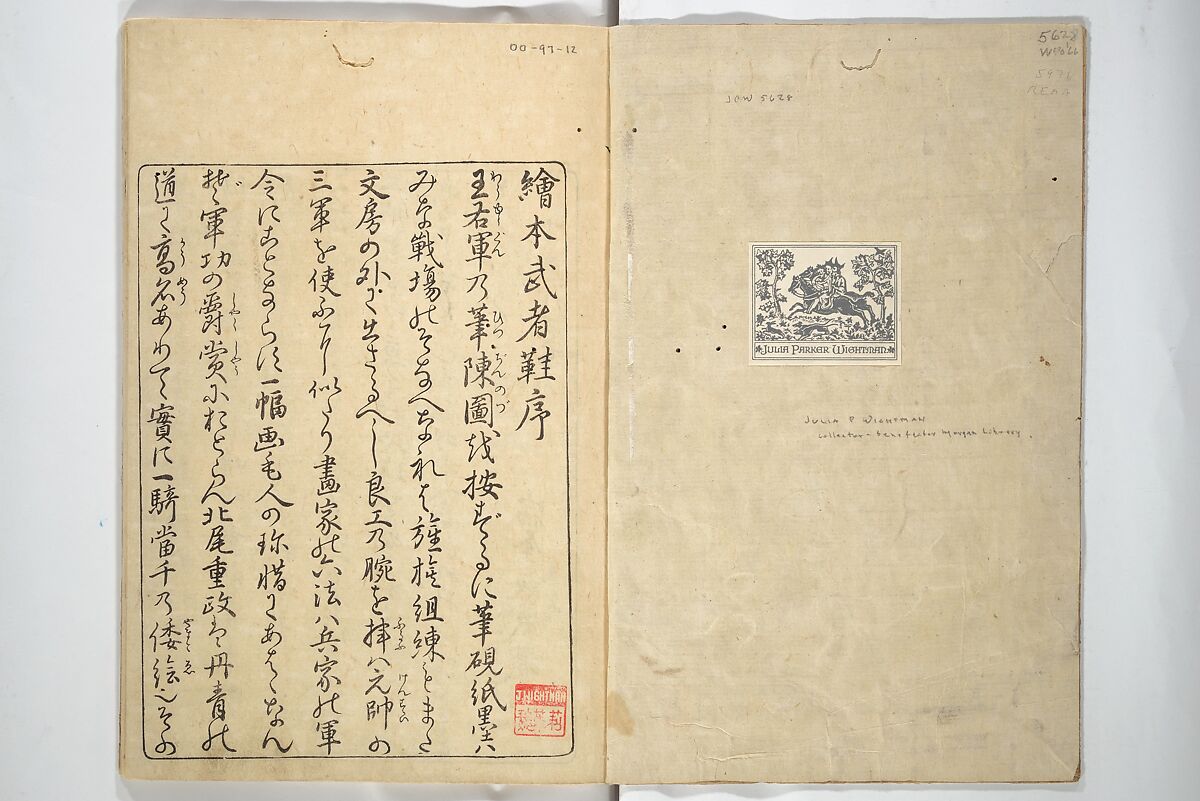 5628
JPW 5628
JULIA PARKER WIGHTMAN
JULIA P WIGHTMAN
collector - benefactor Morgan Library.
00-97-12
繪本武者鞋序
王右軍乃筆陳圖越按ずるに筆硯紙墨ハ
みな戦場のそなへなれは旌旗組練もまた
文房の外に出さるへし良工乃腕を揮ハ元帥の
三軍を使ふに似たり畫家の六法ハ兵家の軍
令にことならす一幅画毛人の珎惜にあはゝなん
ぞ軍功の爵賞におとらん北尾重政は丹青の
道に高名ありて實に一騎當千乃倭絵也その
J.WIGHTMAN